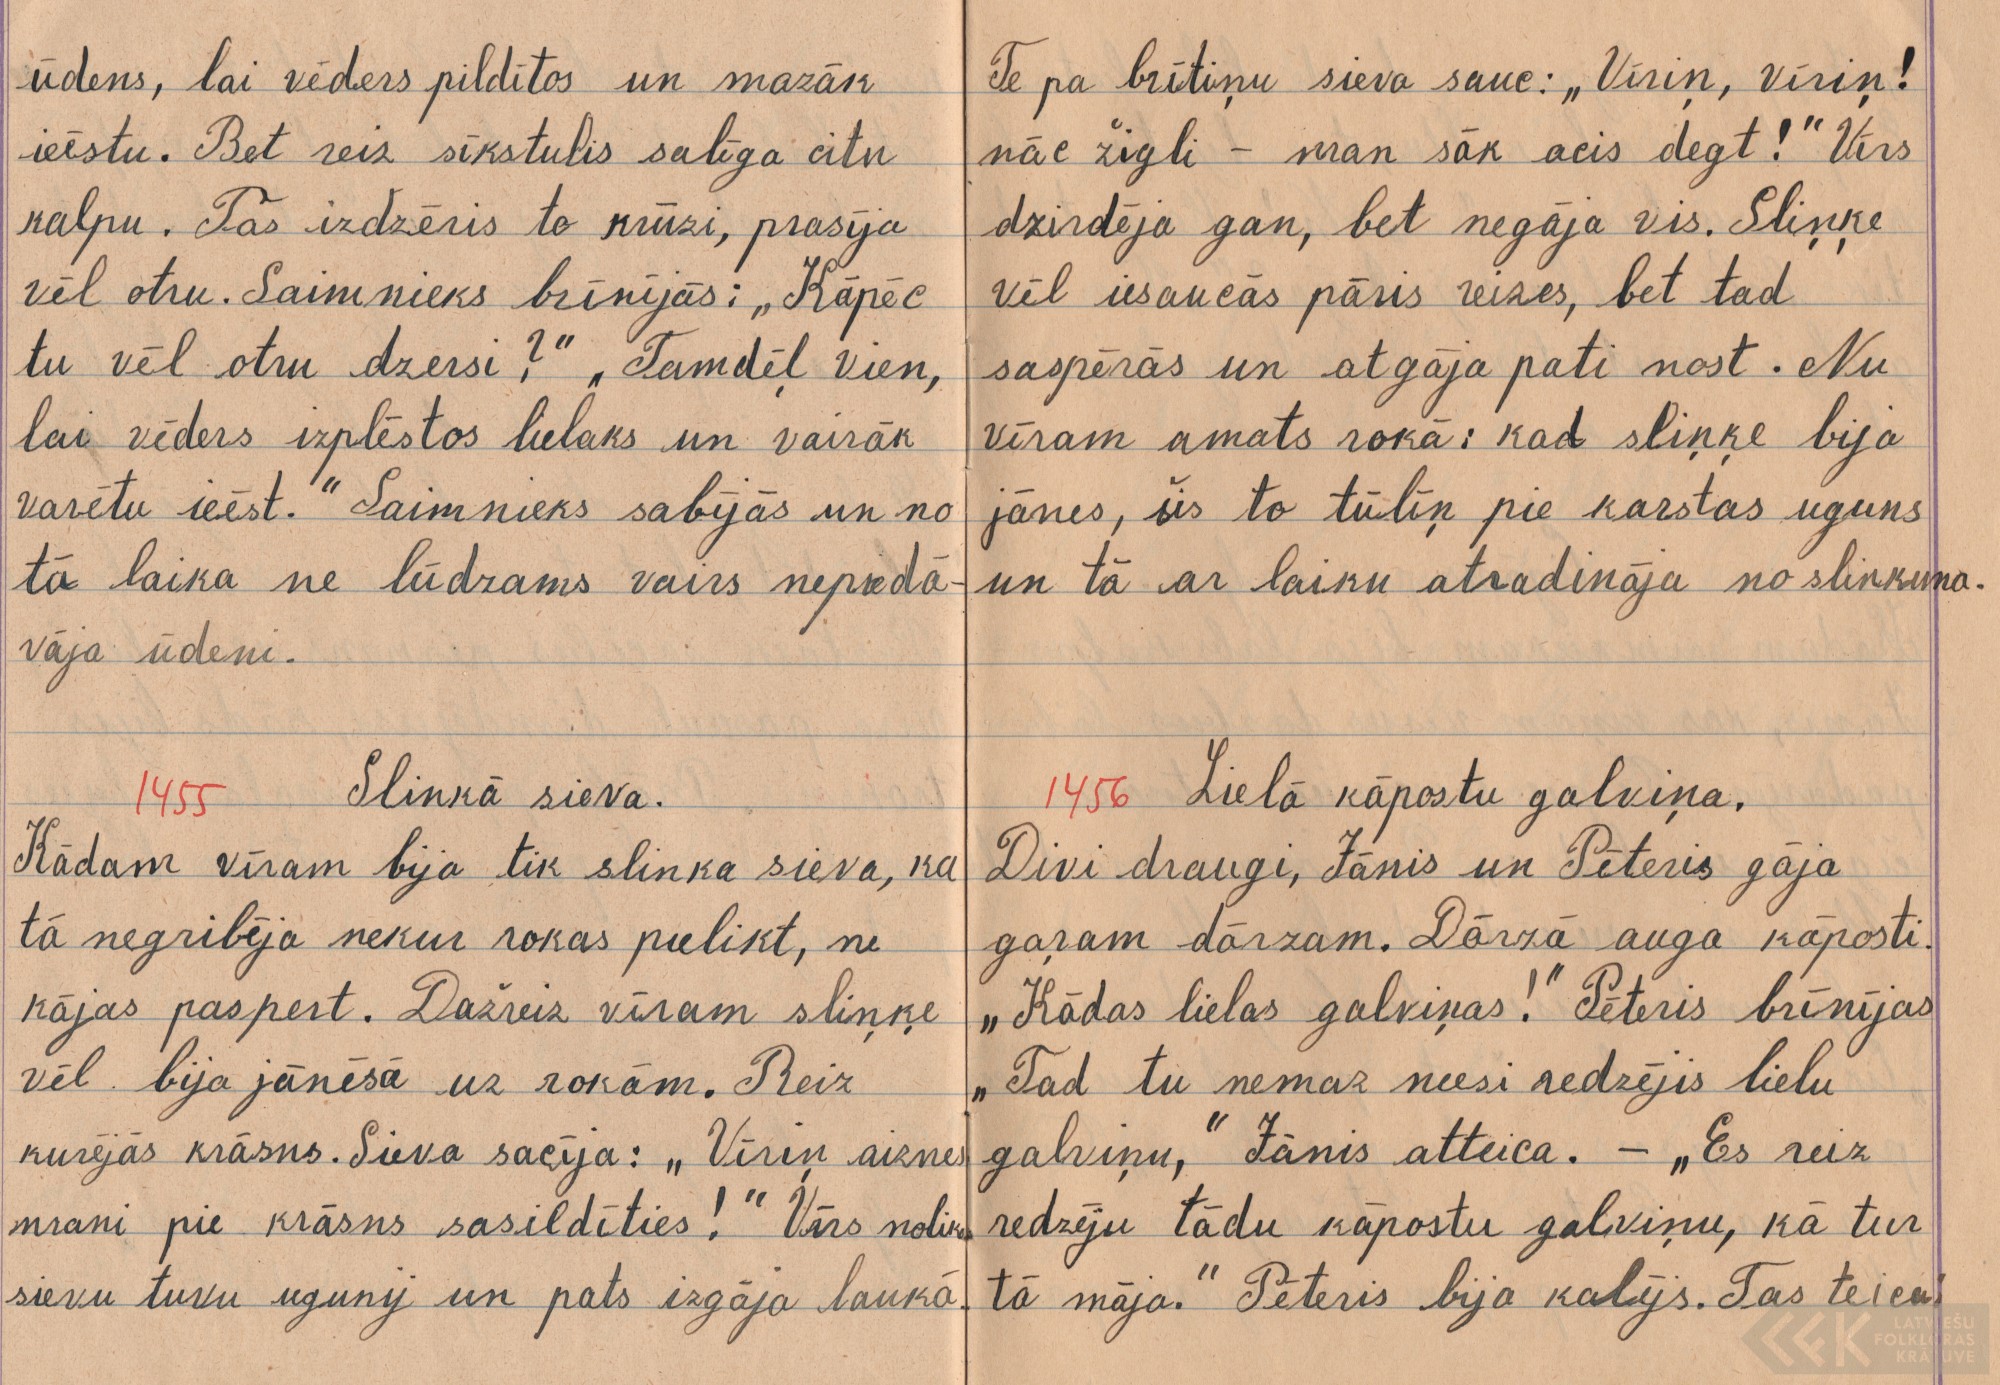 ūdens, lai vēders pildītos un mazāk
ieēstu. Bet reiz sīkstulis salīga citu
kalpu. Tas izdzēris to krūzi, prasīja
vēl otru. Saimnieks brīnījās: „Kāpēc
tu vēl otru dzersi?" „Tamdēļ vien,
lai vēders izplēstos lielaks un vairāk
varētu ieēst." Saimnieks sabijās un no
tā laika ne lūdzams vairs nepiedā-
vāja ūdeni.
1455 Slinkā sieva.
Kādam vīram bija tik slinka sieva, ka
tā negribēja nekur rokas pielikt, ne
kājas paspert. Dažreiz vīram sliņķe
vēl bija jānēsā uz rokām. Reiz
kurējās krāsns. Sieva sacīja: „Vīriņ aiznes
mani pie krāsns sasildīties!" Vīrs nolika
sievu tuvu ugunij un pats izgāja laukā.
Te pa brītiņu sieva sauc: „Vīriņ, vīriņ!
nāc žigli – man sāk acis degt!" Vīrs
dzirdēja gan, bet negāja vis. Sliņķe
vēl iesaucās pāris reizes, bet tad
saspērās un atgāja pati nost. Nu
vīram amats rokā: kad sliņķe bija
jānes, šis to tūlīņ pie karstas uguns
un tā ar laiku atradināja no slinkuma.
1456 Lielā kāpostu galviņa.
Divi draugi, Jānis un Pēteris gāja
gaŗam dārzam. Dārzā auga kāposti.
„Kādas lielas galviņas!" Pēteris brīnījas
„Tad tu nemaz neesi redzējis lielu
galviņu," Jānis atteica. – „Es reiz
redzēju tādu kāpostu galviņu, kā tur
tā māja." Pēteris bija kalējs. Tas teica:
LATVIEŠU
FOLKLORAS
KRĀTUVE